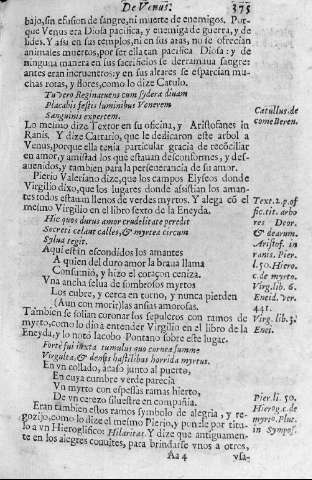 De Venus. 375
bajo, sin efusion de sangre, ni muerte de enemigos. Por-
que Venus era Diosa pacifica, y enemiga de guerra, y de
lides. Y assi en sus templos, ni en sus aras, no se ofrecian
animales muertos, por ser ella tan pacifica Diosa: y de
ninguna manera en sus sacrificios se derramaua sangre:
antes eran incruentos: y en sus altares se esparcian mu-
chas rosas, y flores, como lo dize Catulo.
Tu vero Regina tuens cum sydera diuam
Placabis festis luminibus Venerem
Sanguinis expertem.
Catullus de
come Beren.
Lo mesmo dize Textor en su oficina, y Aristofanes in
Ranis. Y dize Cartario, que le dedicaron este arbol a
Venus, porque ella tenia particular gracia de recõciliar
en amor, y amistad los que estauan desconformes, y des-
auenidos, y tambien para la perseuerancia de su amor.
Pierio Valeriano dize, que los campos Elyseos donde
Virgilio dixo, que los lugares donde assistian los aman-
tes todos estauan llenos de verdes myrtos. Y alega cõ el
mesmo Virgilio en el libro sexto de la Eneyda.
Hic quos durus amor crudeli tabe peredit
Secreti celant calles, & myrtea circum
Sylua tegit.
Text. 2. p. of
fic. tit. arbo
res Deor.
& dearum.
Aristof. in
ranis. Pier.
l. 50. Hiero.
c. de myrto.
Virg. lib. 6.
Eneid. ver.
441.
Aqui estàn escondidos los amantes
A quien del duro amor la braua llama
Consumiò, y hizo el coraçon ceniza.
Vna ancha selua de sombrosos myrtos
Los cubre, y cerca en torno, y nunca pierden
(Aun con morir) las ansias amorosas.
Tambien se solian coronar sus sepulcros con ramos de
myrto, como lo diò a entender Virgilio en el libro de la
Eneyda, y lo notò Iacobo Pontano sobre este lugar.
Virg. lib. 3.
Enei.
Forte fuit iuxta tumulus quo cornea summo
Virgulta, & densis hastilibus horrida myrtus.
En vn collado, acaso junto al puerto,
En cuya cumbre verde parecia
Vn myrto con espessas ramas hierto,
De vn cerezo siluestre en compañia.
Eran tambien estos ramos symbolo de alegria, y re-
gozijo, como lo dize el mesmo Pierio, y ponele por titu-
lo a vn Hieroglifico: Hilaritas. Y dize que antiguamen-
te en los alegres combites, para brindarse vnos a otros,
Pier. li. 50.
Hierog. c. de
myrto. Plut.
in Sympos.
Aa 4 vsa-